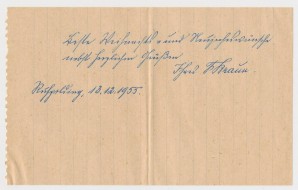 Beste Weihnachts- und Neujahrswünsche
nebst herzlichen Grüßen
Ihres Braun.
Ruhpolding, 13.12.1955.